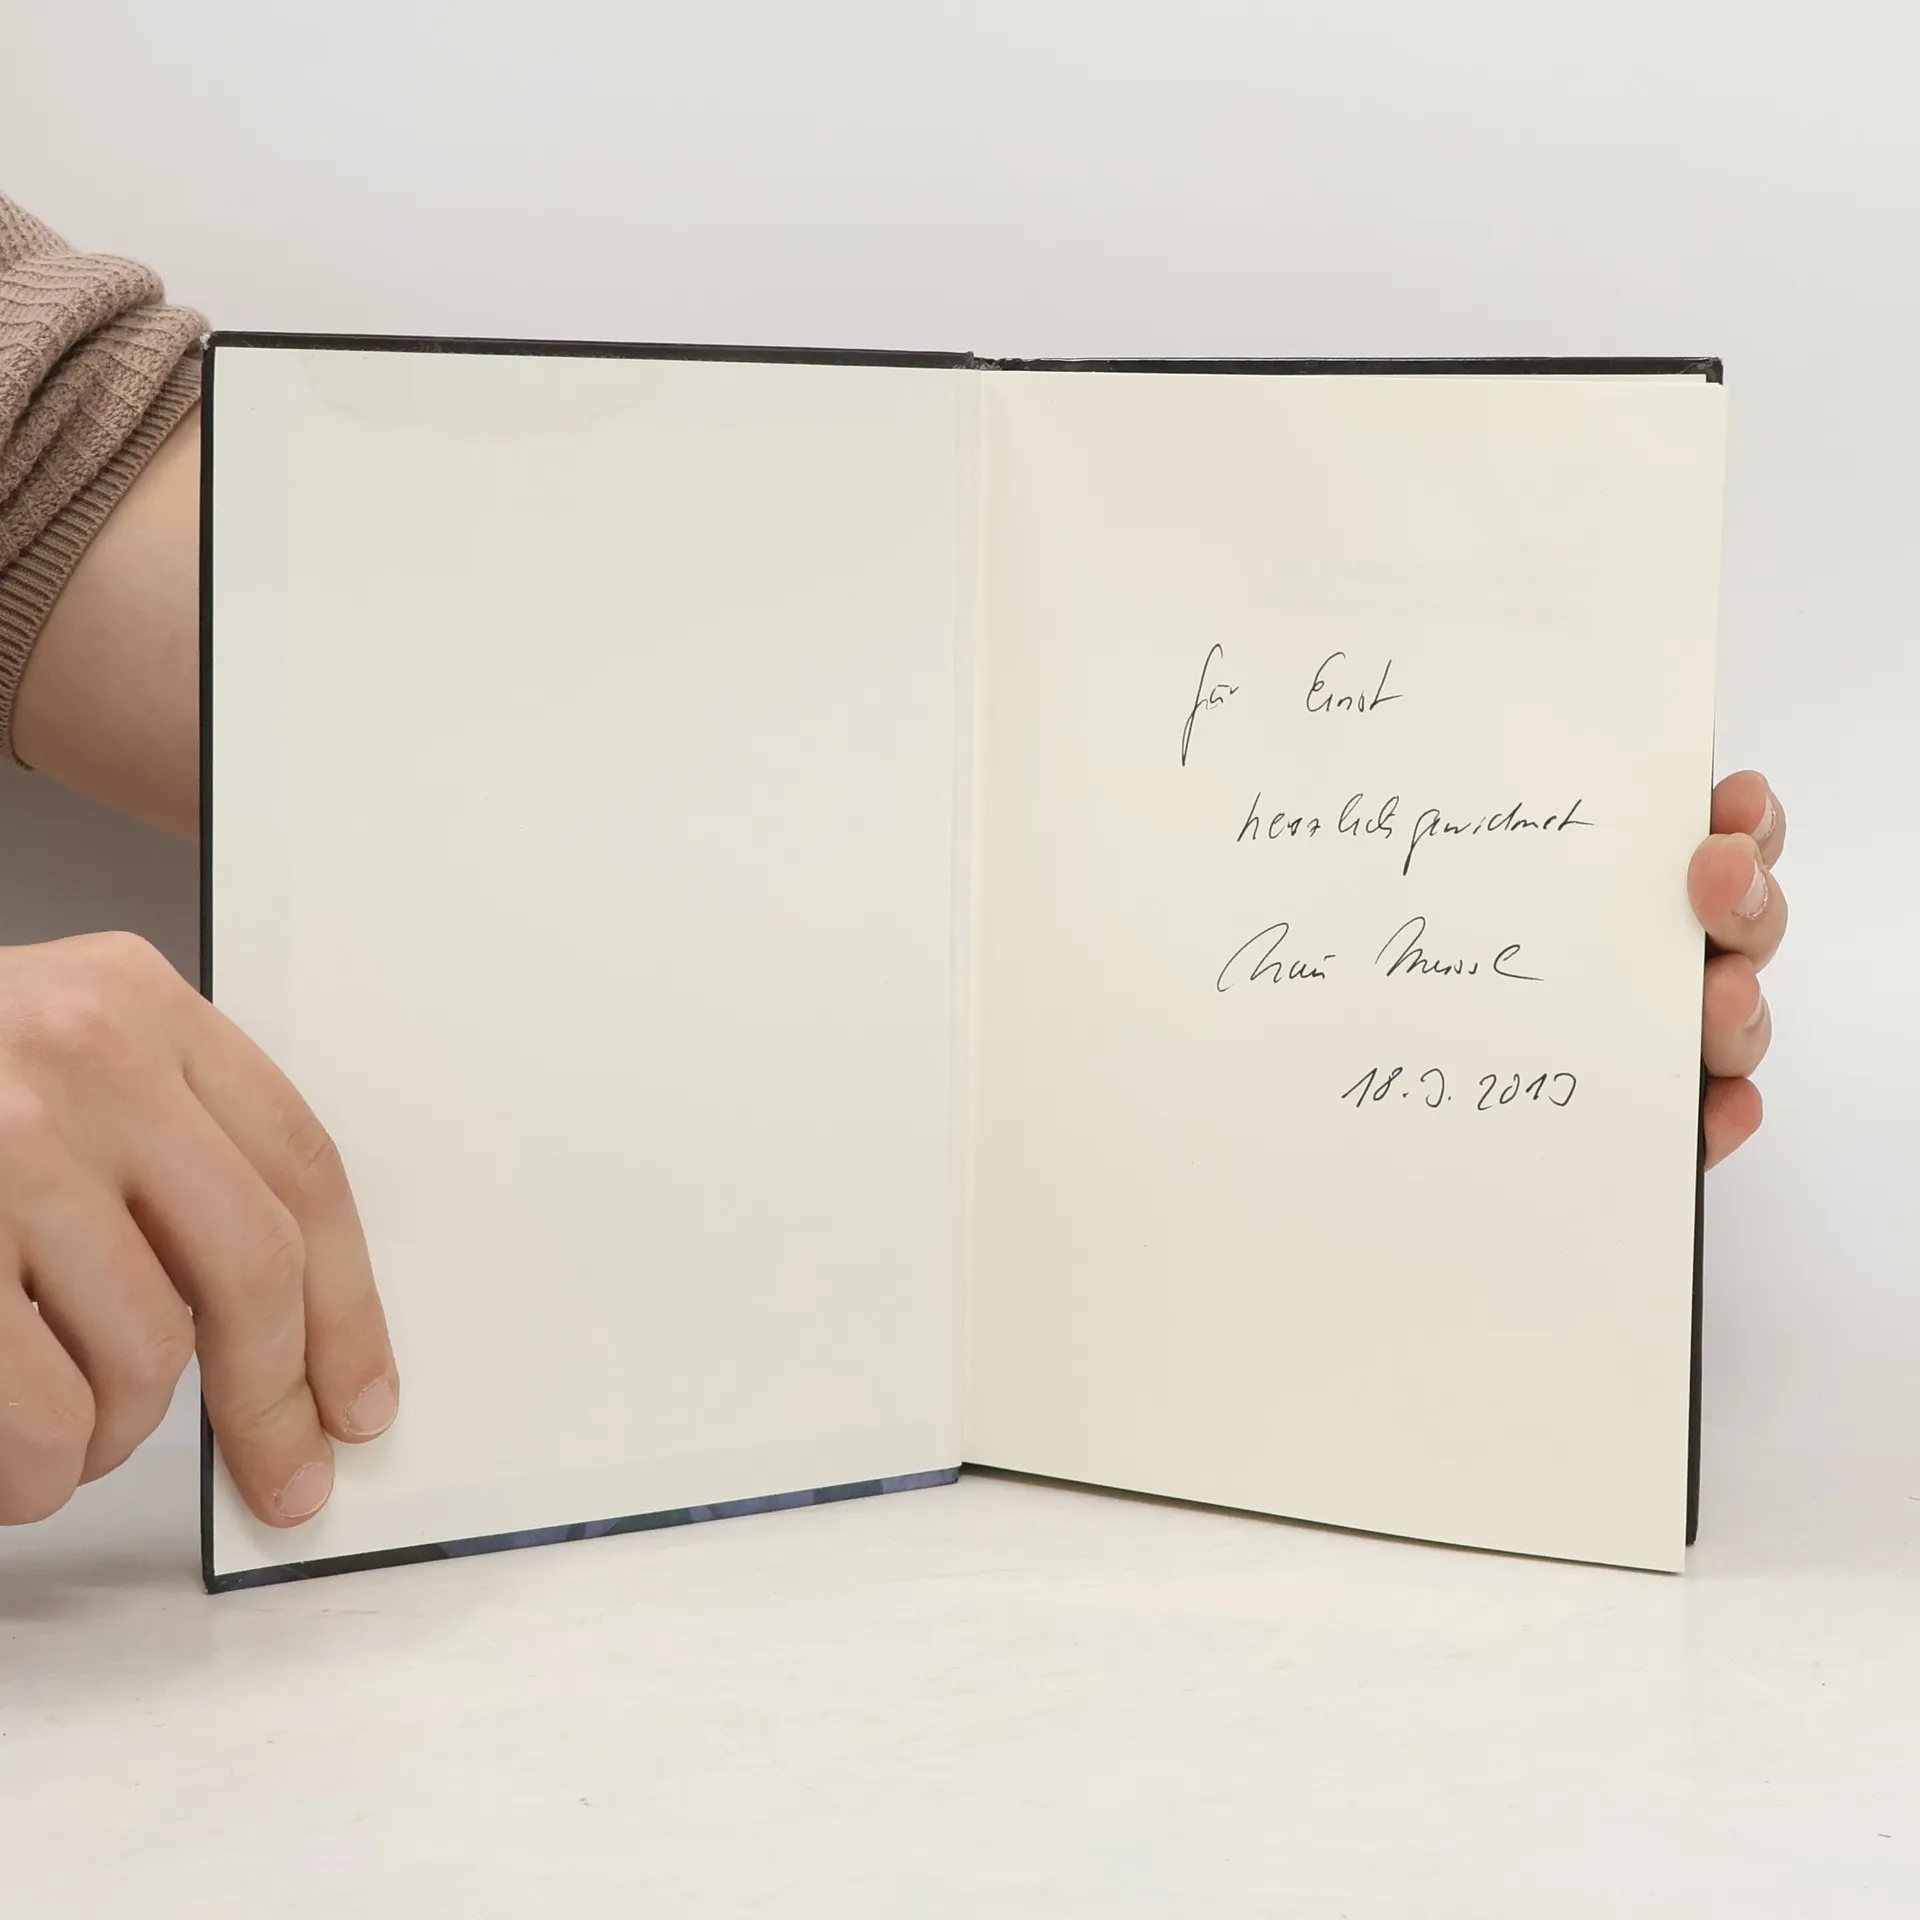 für Ernst
herzlich gewidmet
18.3.2013